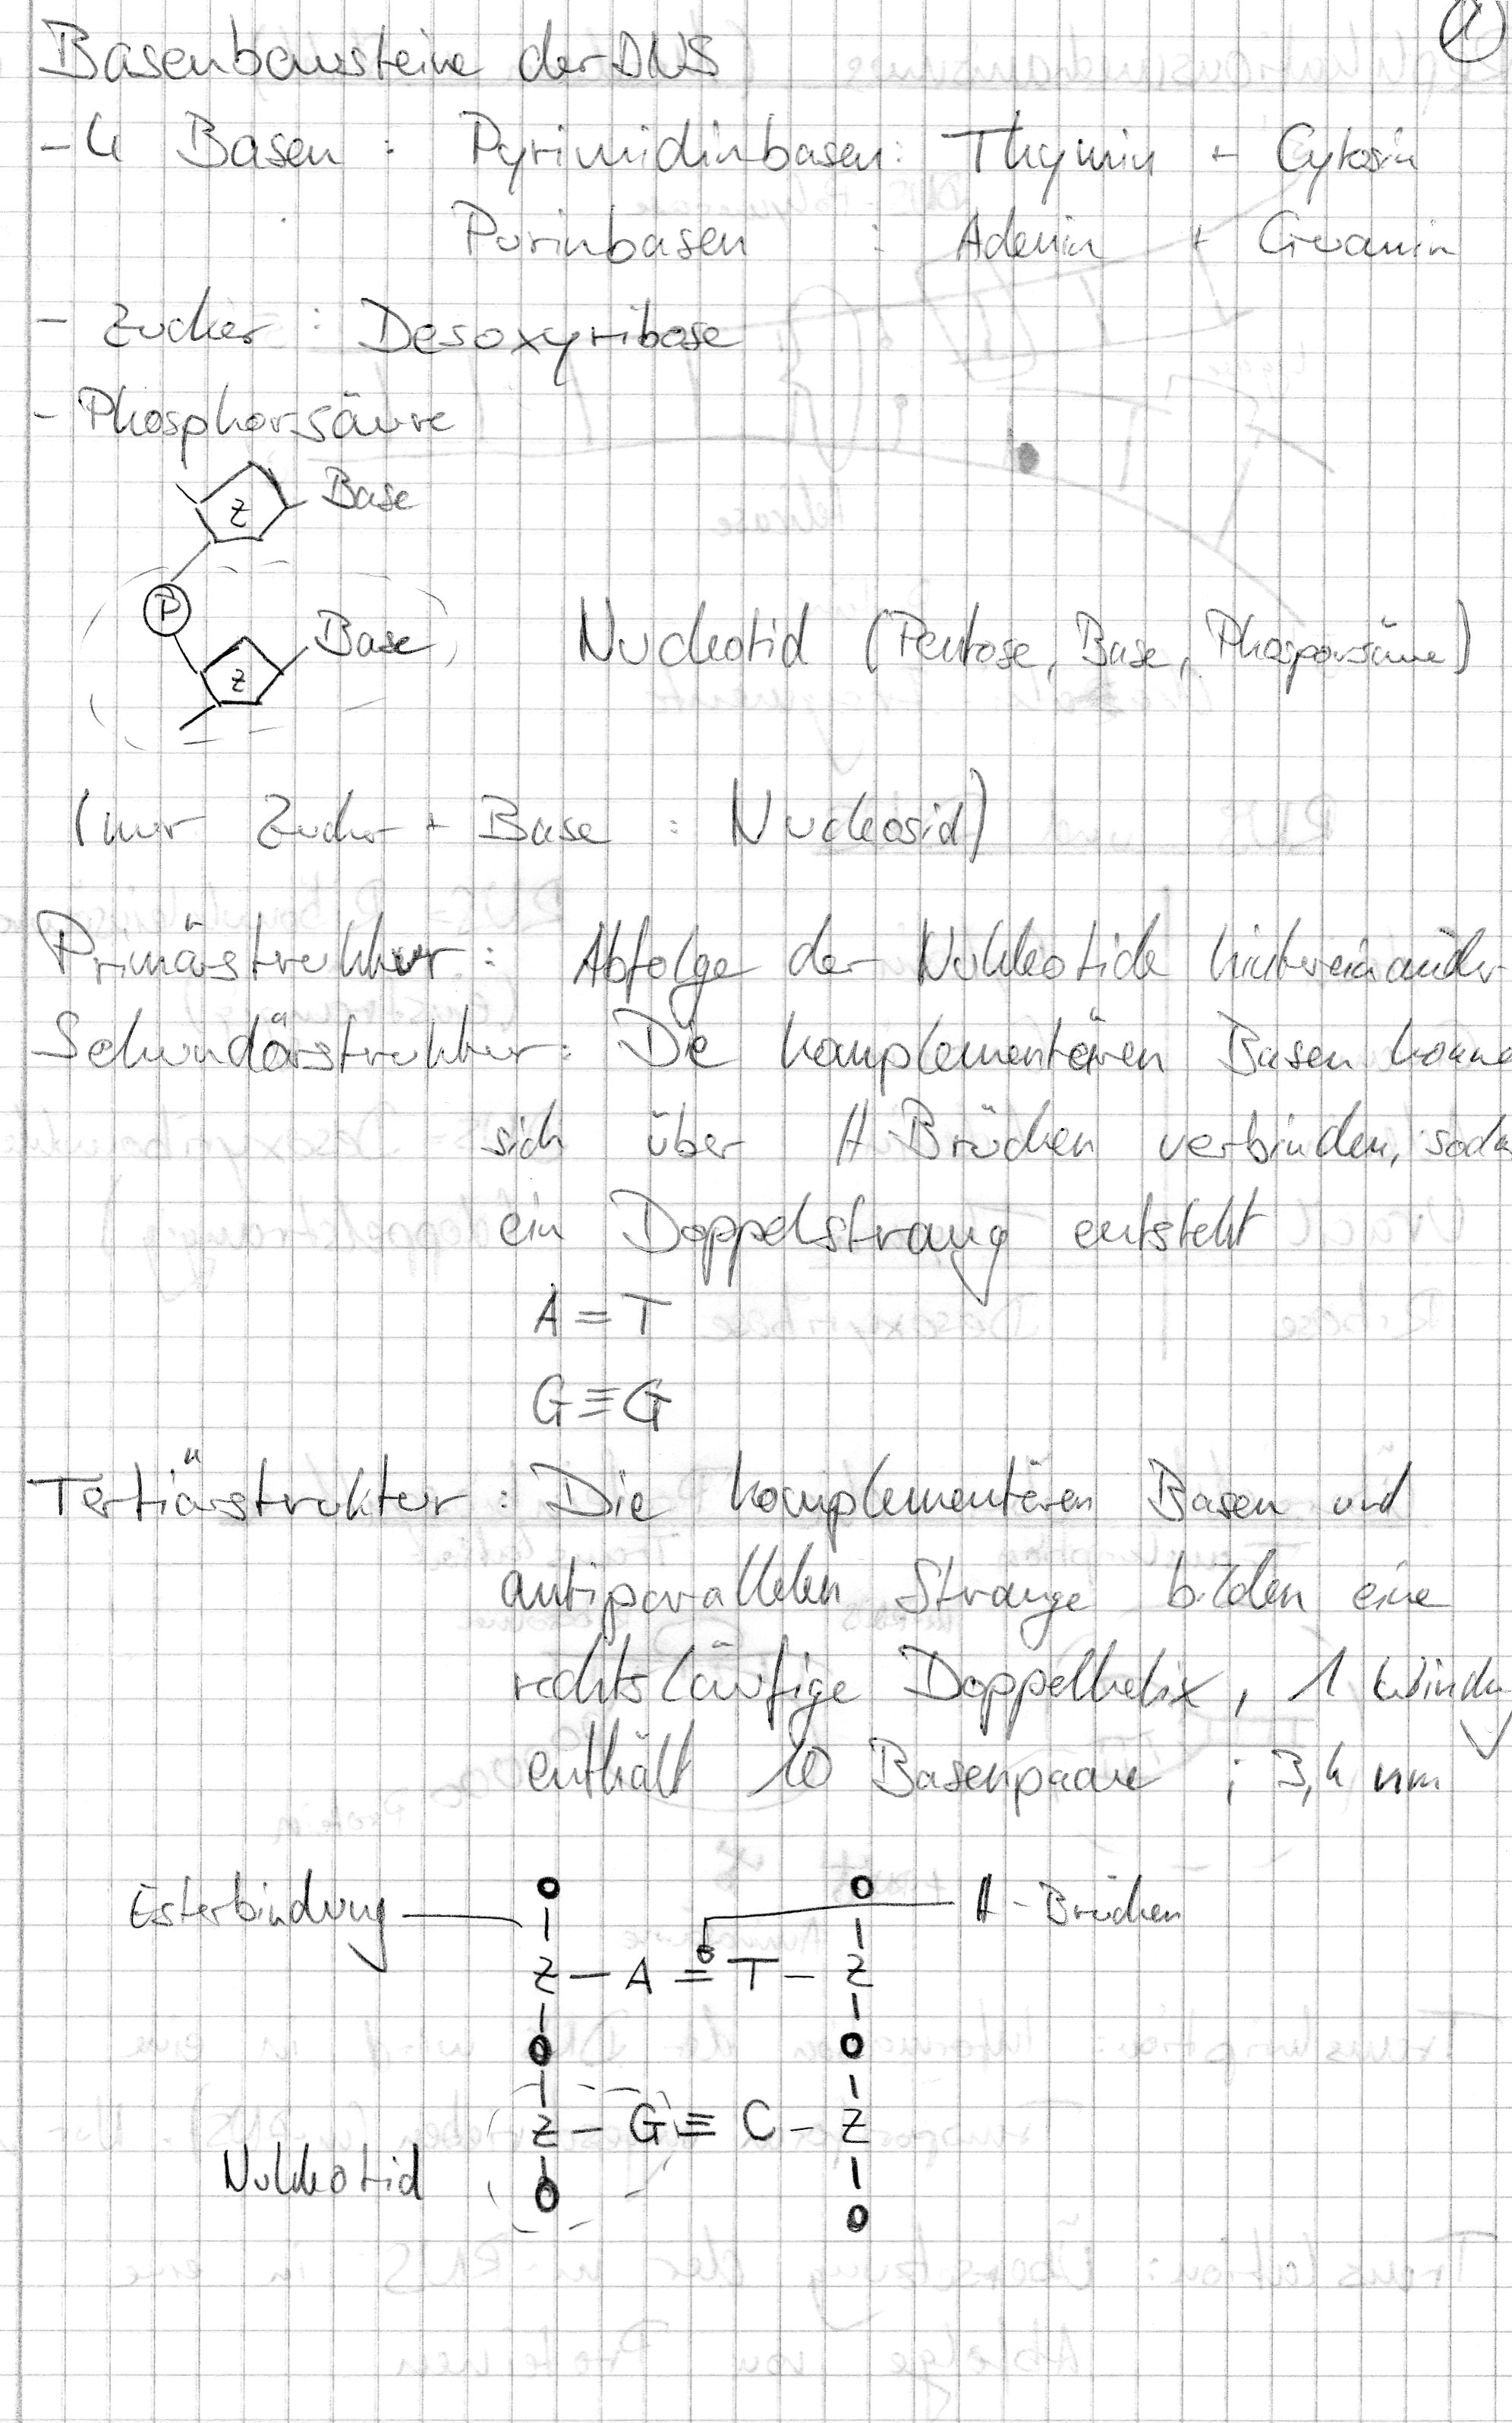 1
Basenbausteine der DNS
- 4 Basen : Pyrimidinbasen: Thymin + Cytosin
Purinbasen : Adenin + Guanin
- Zucker : Desoxyribose
- Phosphorsäure
Z Base
P
Z Base
Nucleotid (Pentose, Base, Phosporsäure)
(nur Zucker + Base : Nucleosid)
Primärstruktur : Abfolge der Nukleotide hintereinander
Sekundärstruktur : Die komplementären Basen könne
sich über H Brücken verbinden, soda
ein Doppelstrang entsteht
A = T
G ≡ G
Tertiärstruktur : Die komplementären Basen und
antiparallelen Stränge bilden eine
rechtsläufige Doppelhelix, 1 Windu
enthält 10 Basenpaare ; 3,4 nm
Esterbindung
H - Brücken
Z - A = T - Z
Z - G ≡ C - Z
Nukleotid